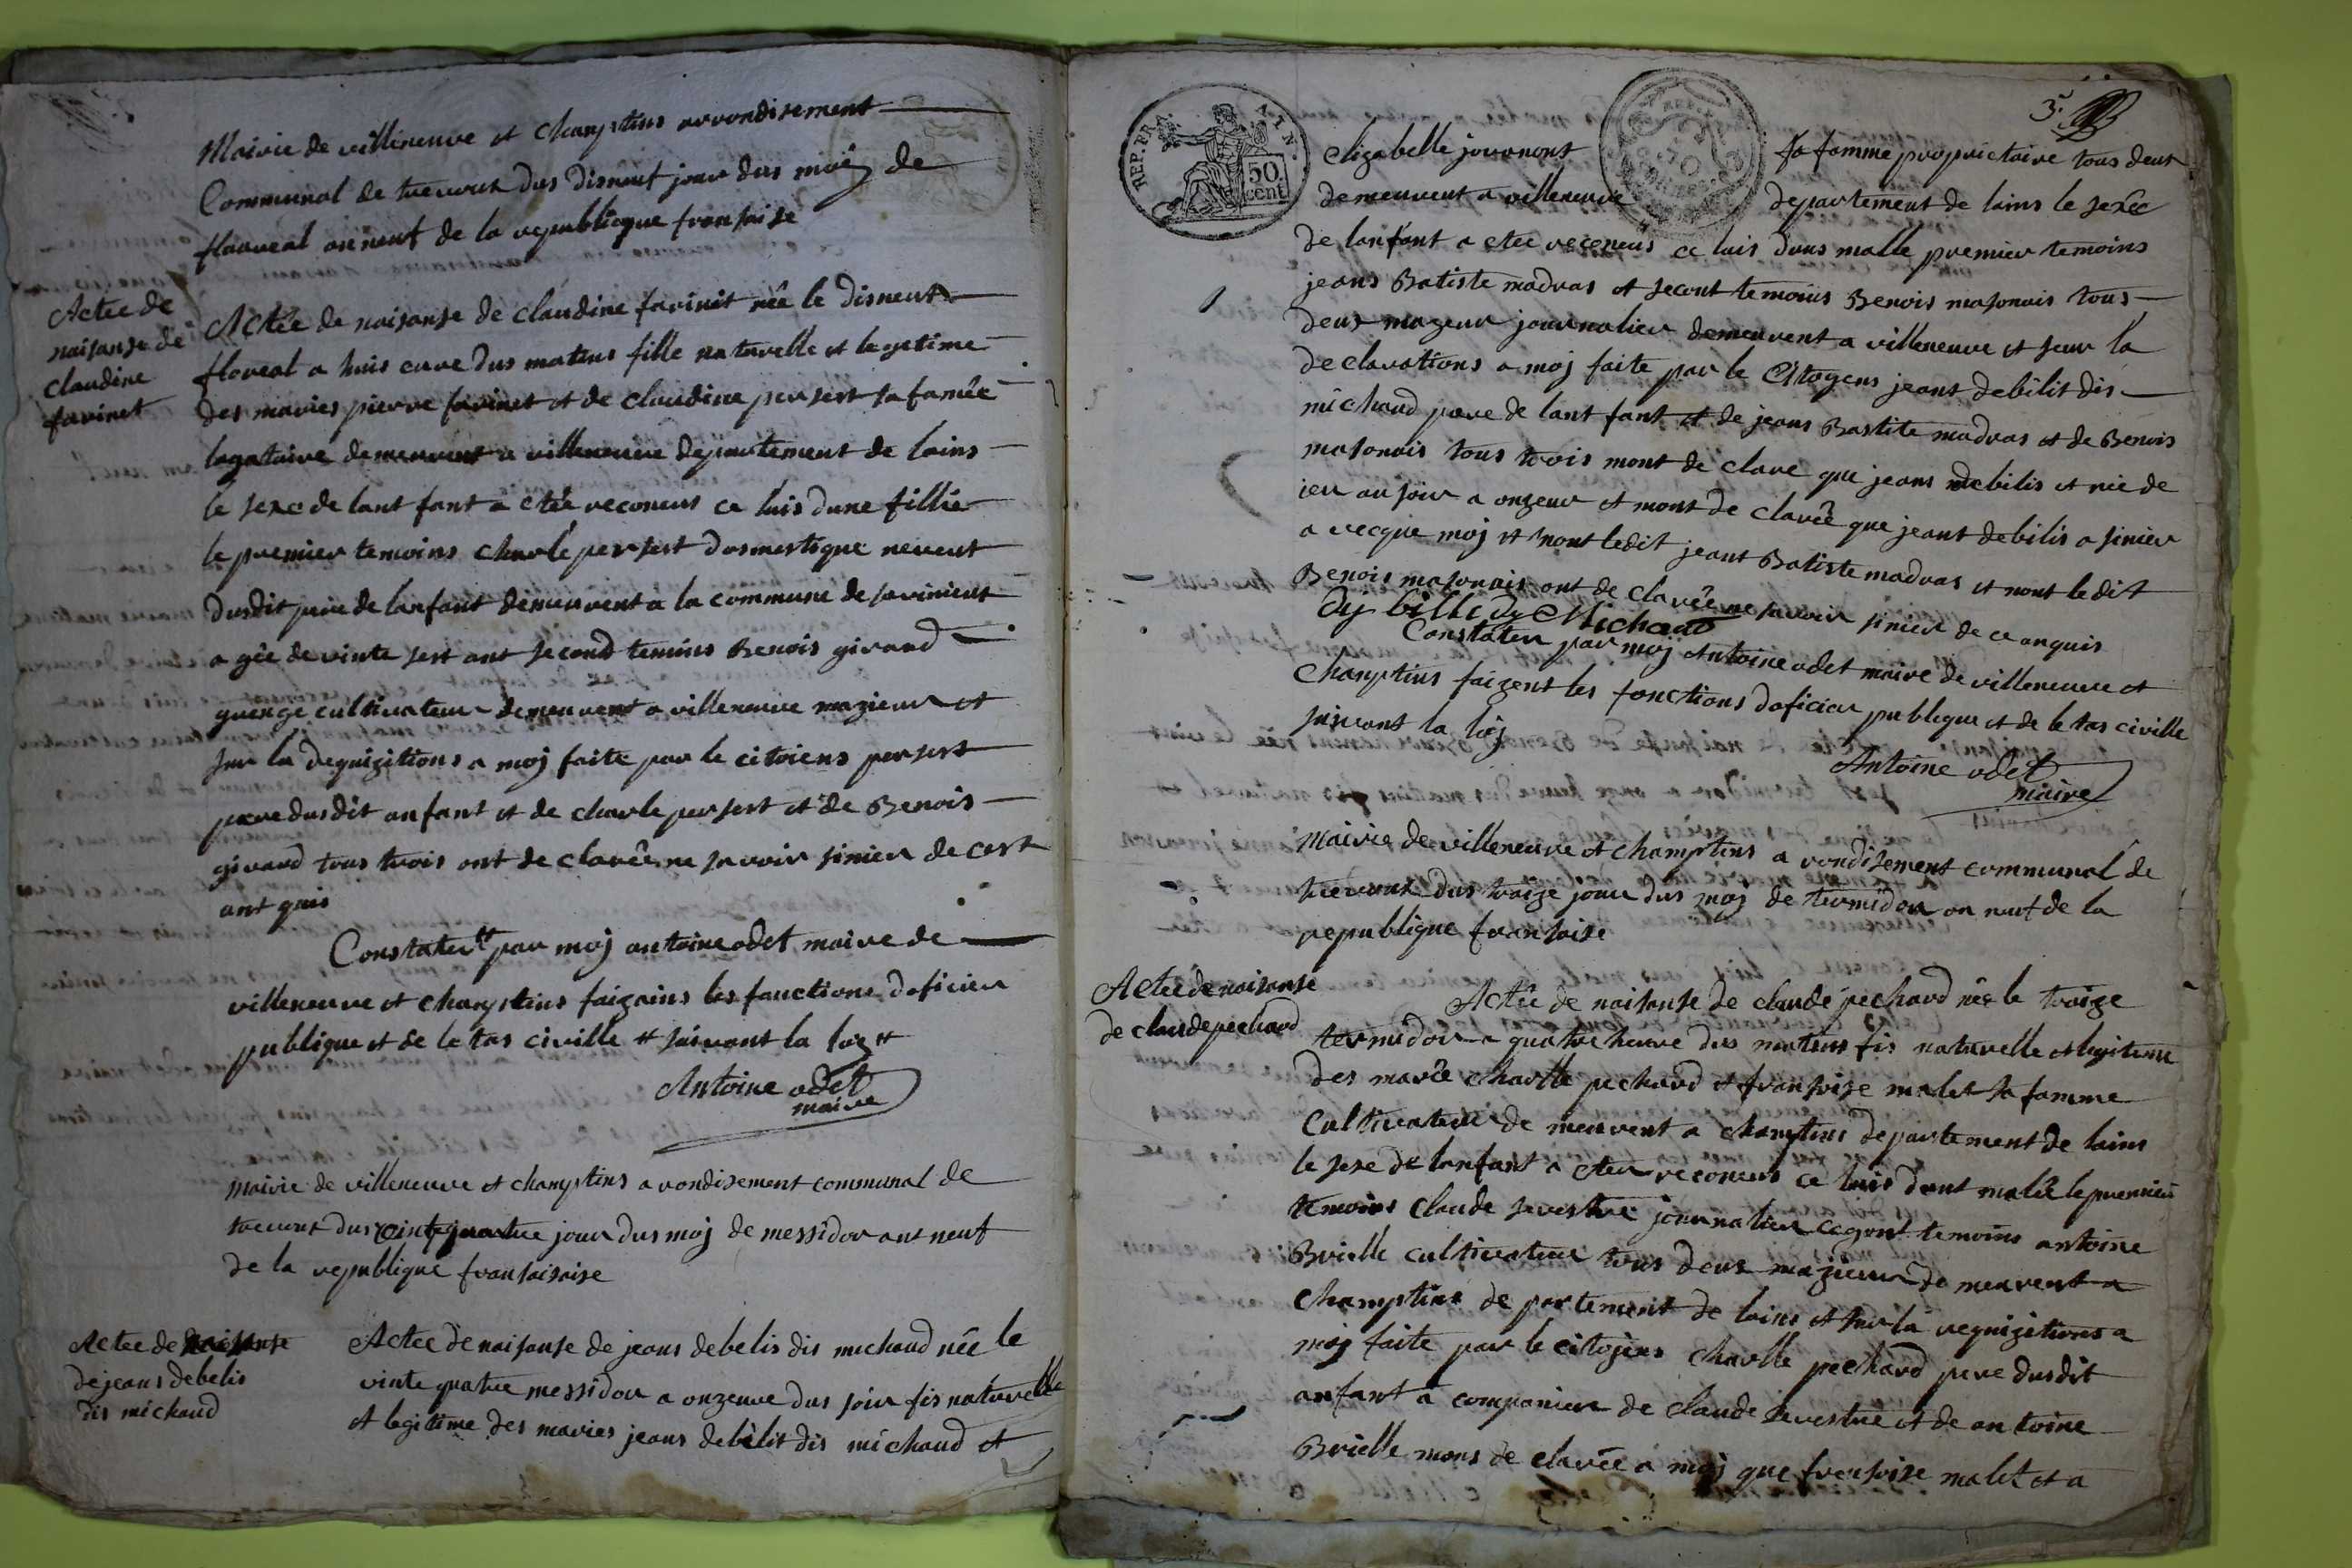 Mairie de villeneuve et champtins arrondisement
Communal de trevous dus disneuf jour dus mois de
flaureal an neuf de la republicque fransaise
Actee de
naisanse de
claudine
farinet
Actêe de naisanse de claudine farinit née le disneut
floreal a huis eure dus matins fille naturelle et legetime
des maries pierre farinet et de claudine persert sa famêe
logataire demeurent a villeneuve departement de lains
le sexe de lant fant a etée reconeus ce luis dune fillie
le premier temoins charle persert dosmestique neveut
dusdit pere de lanfant demeurent a la commune de savinieux
a gée de vinte sest ant second temins Benois girard
quenge cultivateur demeurent a villeneuve mazieur et
sur la dequizitions a moj faite par le citoiens persert
pere dusdit anfant et de charle persert et de Benois
girard tous trois ont de clarêe ne savoir sinier de cest
ant quis
Constater par moj antoine odet maire de
villeneuve et champtins faizains les fonctions doficier
publique et de le tas civille suivant la loy
Antoine odet
maire
Mairie de villeneuve et champtins a rondisement communal de
trevous dus vinte quatre jour dus moj de messidor ant neuf
de la republique fransaisaise
Actee de naisanse
de jeans debelis
dis michaud
Actee de naisanse de jeans debelis dis michaud née le
vinte quatre messidor a onzeure dus soir fis naturelle
et legitime des maries jeans debilit dis michaud et
3.
REP. FRA. 50 cent
elizabelle journont sa famme proprietaire tous deus
demeurent a villeneuve departement de lains le sexêe
de lanfant a etée reconeus ce luis dous malle premier temoins
jeans Batiste madras et secont temoins Benois masonais tous
deus mazeur journalier demeurent a villeneuve et seur la
declarations a moj faite par le Citogens jeans debilit dis
michaud pere de lant fant et de jeans Bastite madras et de Benois
masonais tous trois mont de clare que jeans debilis et née de
ier au soir a onzeur et mont de clarêe que jeant debilis a sinier
a vecque moj et nont ledit jeant Batiste madras et nont le dit
Benois masonais ont de clarêe ne savoir sinier de ce anquis
dy bille dy Michaud
Constater par moj Antoine odet maire de villeneuve et
Champtins faizent les fonctions doficier publique et de le tas civille
suivant la loj
Antoine odet
maire
Mairie de villeneuve et champtins a rondisement communal de
trevous dus traize jour dus moj de termidor an neuf de la
republique fransaise
Actée de naisanse
de claude pechard
Actêe de naisanse de claude pechard née le traize
termidor a quatre heure dus matins fis naturelle et legiteme
des marêe charlle pechard et fransoise malet sa famme
Cultivateur de meurent a champtins departement de lains
le sexe de lanfant a eter reconeus ce luis dont malêe le premier
temoins Claude sevestre journalier cegont temoins antoine
Brielle cultivateur tous deus mazieur de meurent a
Champtins de partement de lains et sur la requizitions a
moj faite par le citojens charlle pechard pere dusdit
anfant a companier de claude sevestre et de antoine
Brielle mons de clarée a moj que fransoise malet et a